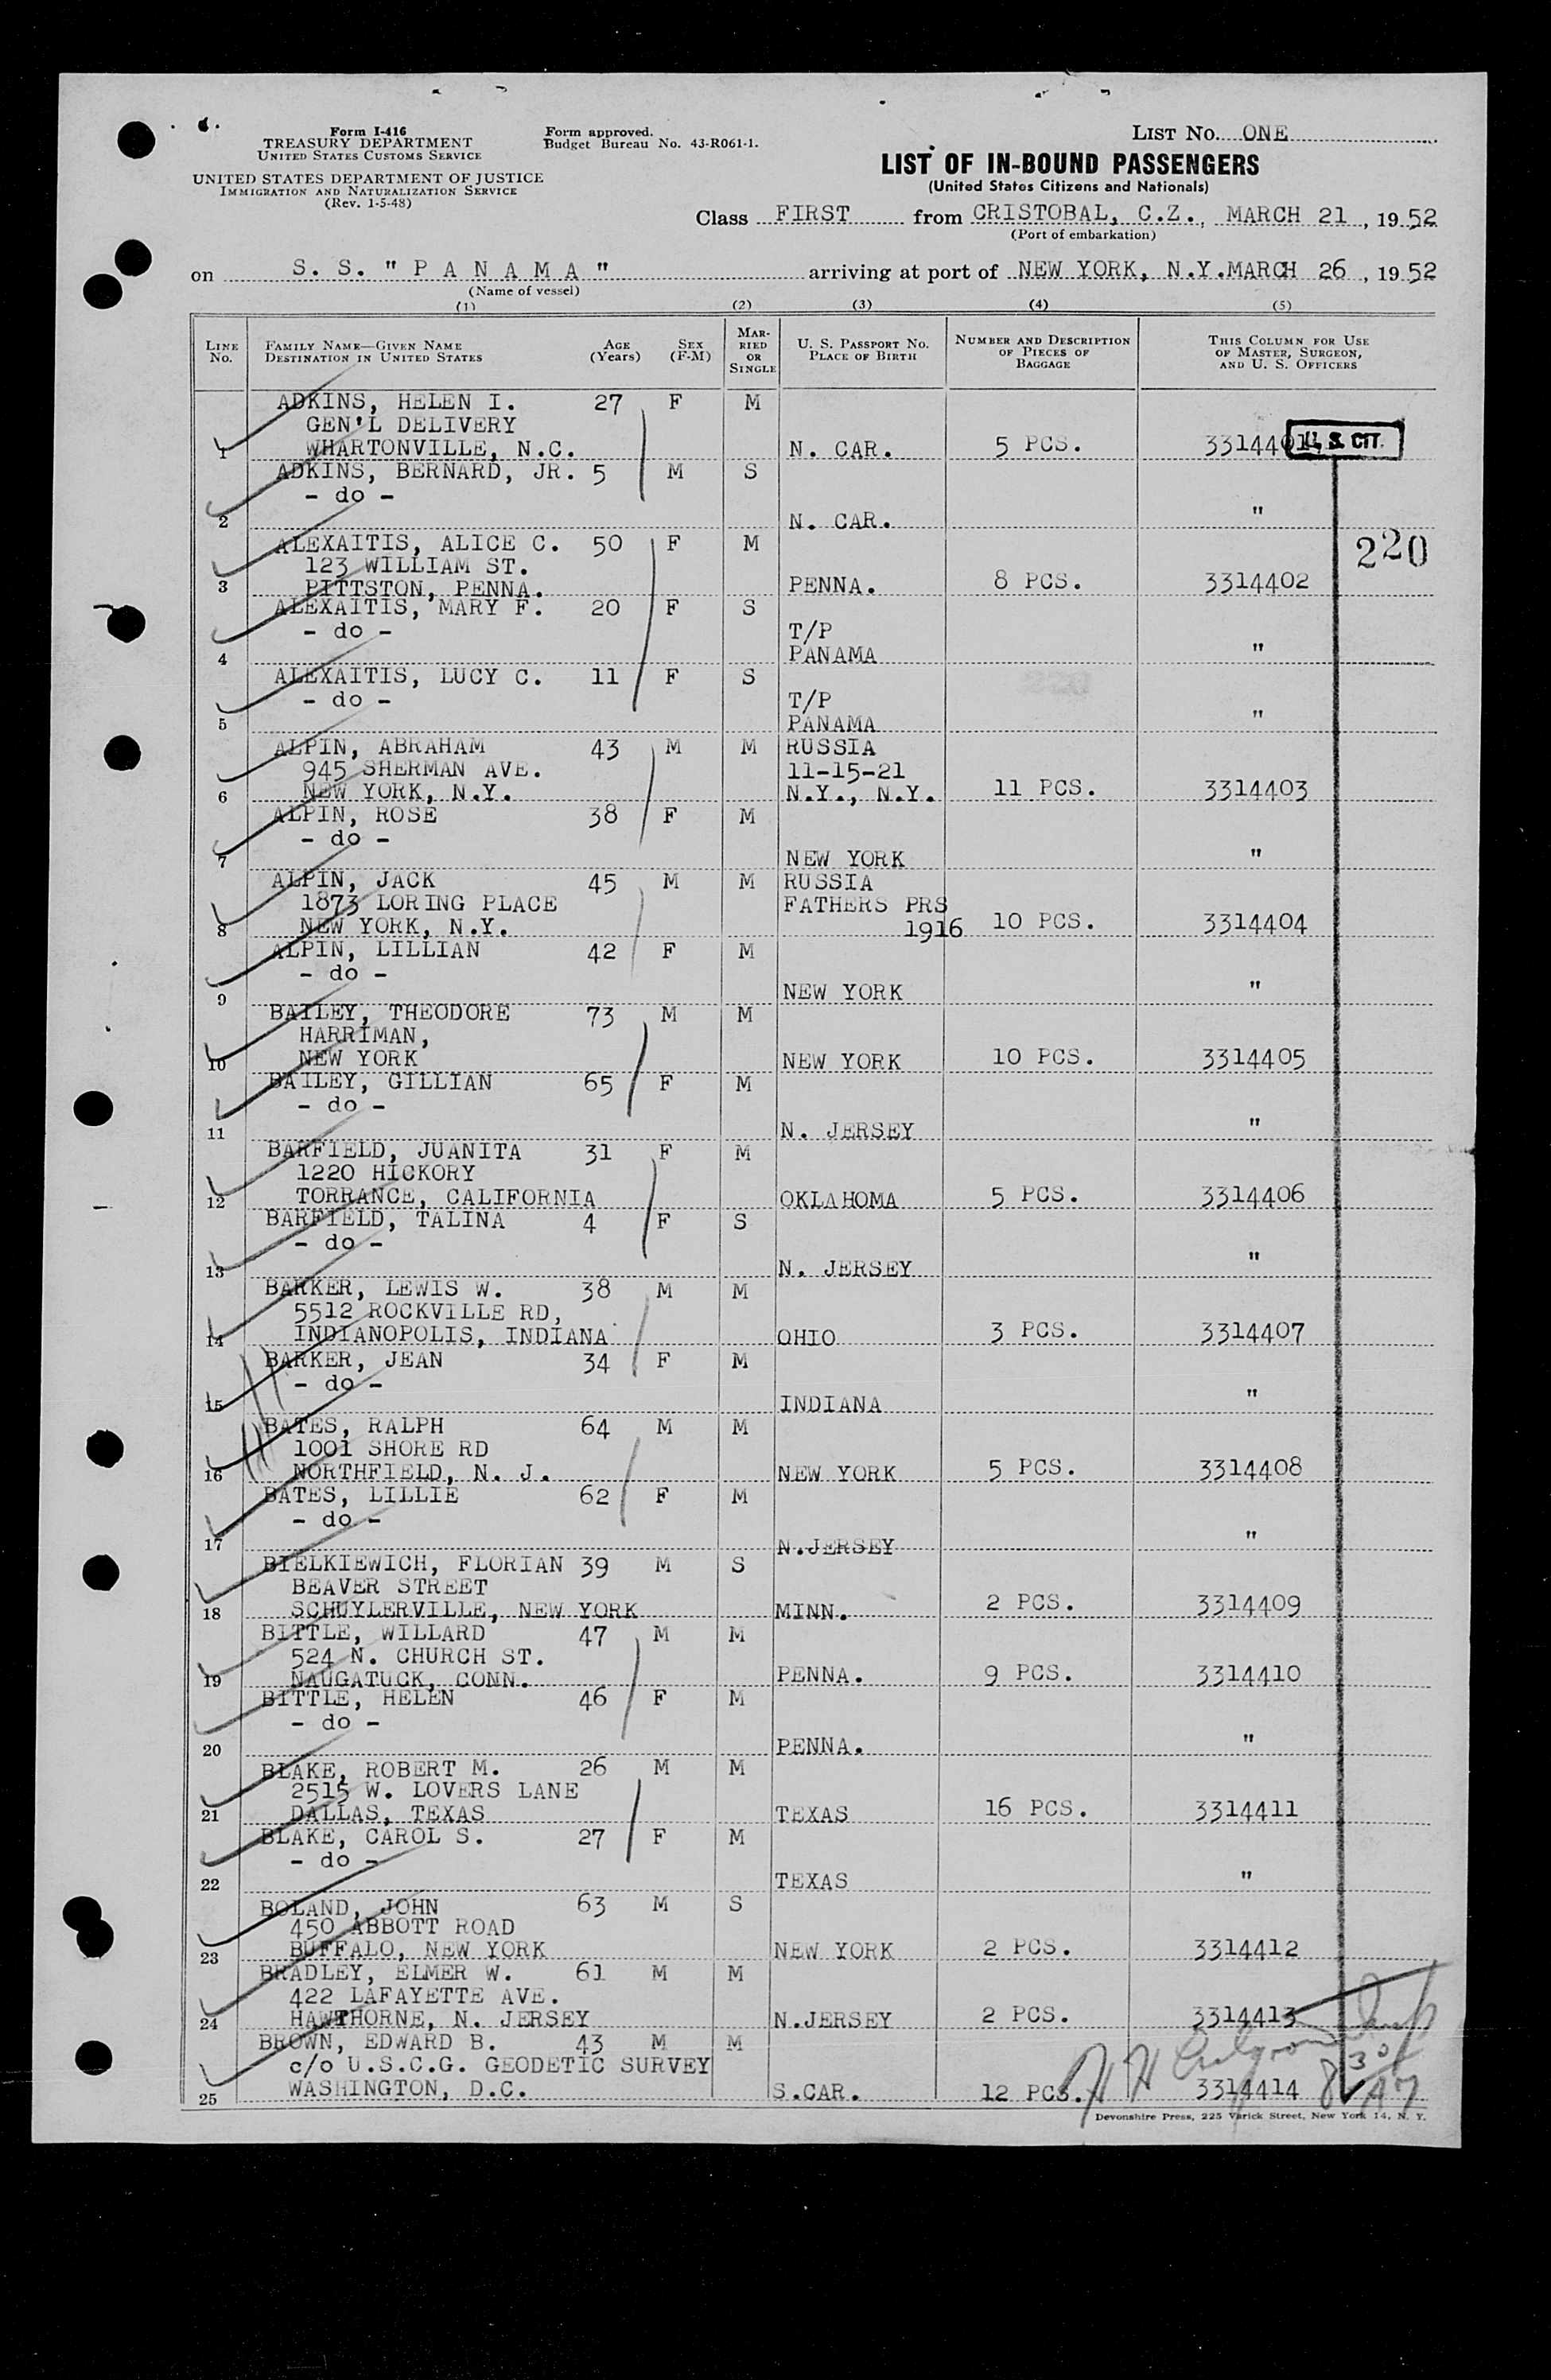 Form I-416
TREASURY DEPARTMENT
UNITED STATES CUSTOMS SERVICE
UNITED STATES DEPARTMENT OF JUSTICE
IMMIGRATION AND NATURALIZATION SERVICE
(Rev. 1-5-48)
Form approved.
Budget Bureau No. 43-R061-1.
LIST No. ONE
LIST OF IN-BOUND PASSENGERS
(United States Citizens and Nationals)
Class FIRST from CRISTOBAL, C.Z., MARCH 21, 1952
(Port of embarkation)
on S. S. "PANAMA" arriving at port of NEW YORK, N.Y. MARCH 26, 1952
(Name of vessel)
(1) (2) (3) (4) (5)
LINE No. FAMILY NAME—GIVEN NAME DESTINATION IN UNITED STATES AGE (Years) SEX (F-M) MARRIED OR SINGLE U. S. PASSPORT No. PLACE OF BIRTH NUMBER AND DESCRIPTION OF PIECES OF BAGGAGE THIS COLUMN FOR USE OF MASTER, SURGEON, AND U. S. OFFICERS
ADKINS, HELEN I. 27 F M
GEN'L DELIVERY
1 WHARTONVILLE, N.C. N. CAR. 5 PCS. 3314401 U. S. CIT.
ADKINS, BERNARD, JR. 5 M S
- do -
2 N. CAR. "
220
ALEXAITIS, ALICE C. 50 F M
123 WILLIAM ST.
3 PITTSTON, PENNA. PENNA. 8 PCS. 3314402
ALEXAITIS, MARY F. 20 F S
- do - T/P
4 PANAMA "
ALEXAITIS, LUCY C. 11 F S
- do - T/P
5 PANAMA "
ALPIN, ABRAHAM 43 M M RUSSIA
945 SHERMAN AVE. 11-15-21
6 NEW YORK, N.Y. N.Y., N.Y. 11 PCS. 3314403
ALPIN, ROSE 38 F M
- do -
7 NEW YORK "
ALPIN, JACK 45 M M RUSSIA
1873 LORING PLACE FATHERS PRS
8 NEW YORK, N.Y. 1916 10 PCS. 3314404
ALPIN, LILLIAN 42 F M
- do -
9 NEW YORK "
BAILEY, THEODORE 73 M M
HARRIMAN,
10 NEW YORK NEW YORK 10 PCS. 3314405
BAILEY, GILLIAN 65 F M
- do -
11 N. JERSEY "
BARFIELD, JUANITA 31 F M
1220 HICKORY
12 TORRANCE, CALIFORNIA OKLAHOMA 5 PCS. 3314406
BARFIELD, TALINA 4 F S
- do -
13 N. JERSEY "
BARKER, LEWIS W. 38 M M
5512 ROCKVILLE RD,
14 INDIANOPOLIS, INDIANA OHIO 3 PCS. 3314407
BARKER, JEAN 34 F M
- do -
15 INDIANA "
BATES, RALPH 64 M M
1001 SHORE RD
16 NORTHFIELD, N. J. NEW YORK 5 PCS. 3314408
BATES, LILLIE 62 F M
- do -
17 N.JERSEY "
BIELKIEWICH, FLORIAN 39 M S
BEAVER STREET
18 SCHUYLERVILLE, NEW YORK MINN. 2 PCS. 3314409
BITTLE, WILLARD 47 M M
524 N. CHURCH ST.
19 NAUGATUCK, CONN. PENNA. 9 PCS. 3314410
BITTLE, HELEN 46 F M
- do -
20 PENNA. "
BLAKE, ROBERT M. 26 M M
2515 W. LOVERS LANE
21 DALLAS, TEXAS TEXAS 16 PCS. 3314411
BLAKE, CAROL S. 27 F M
- do -
22 TEXAS "
BOLAND, JOHN 63 M S
450 ABBOTT ROAD
23 BUFFALO, NEW YORK NEW YORK 2 PCS. 3314412
BRADLEY, ELMER W. 61 M M
422 LAFAYETTE AVE.
24 HAWTHORNE, N. JERSEY N.JERSEY 2 PCS. 3314413
BROWN, EDWARD B. 43 M M
c/o U.S.C.G. GEODETIC SURVEY
25 WASHINGTON, D.C. S.CAR. 12 PCS. 3314414
Devonshire Press, 225 Varick Street, New York 14, N. Y.